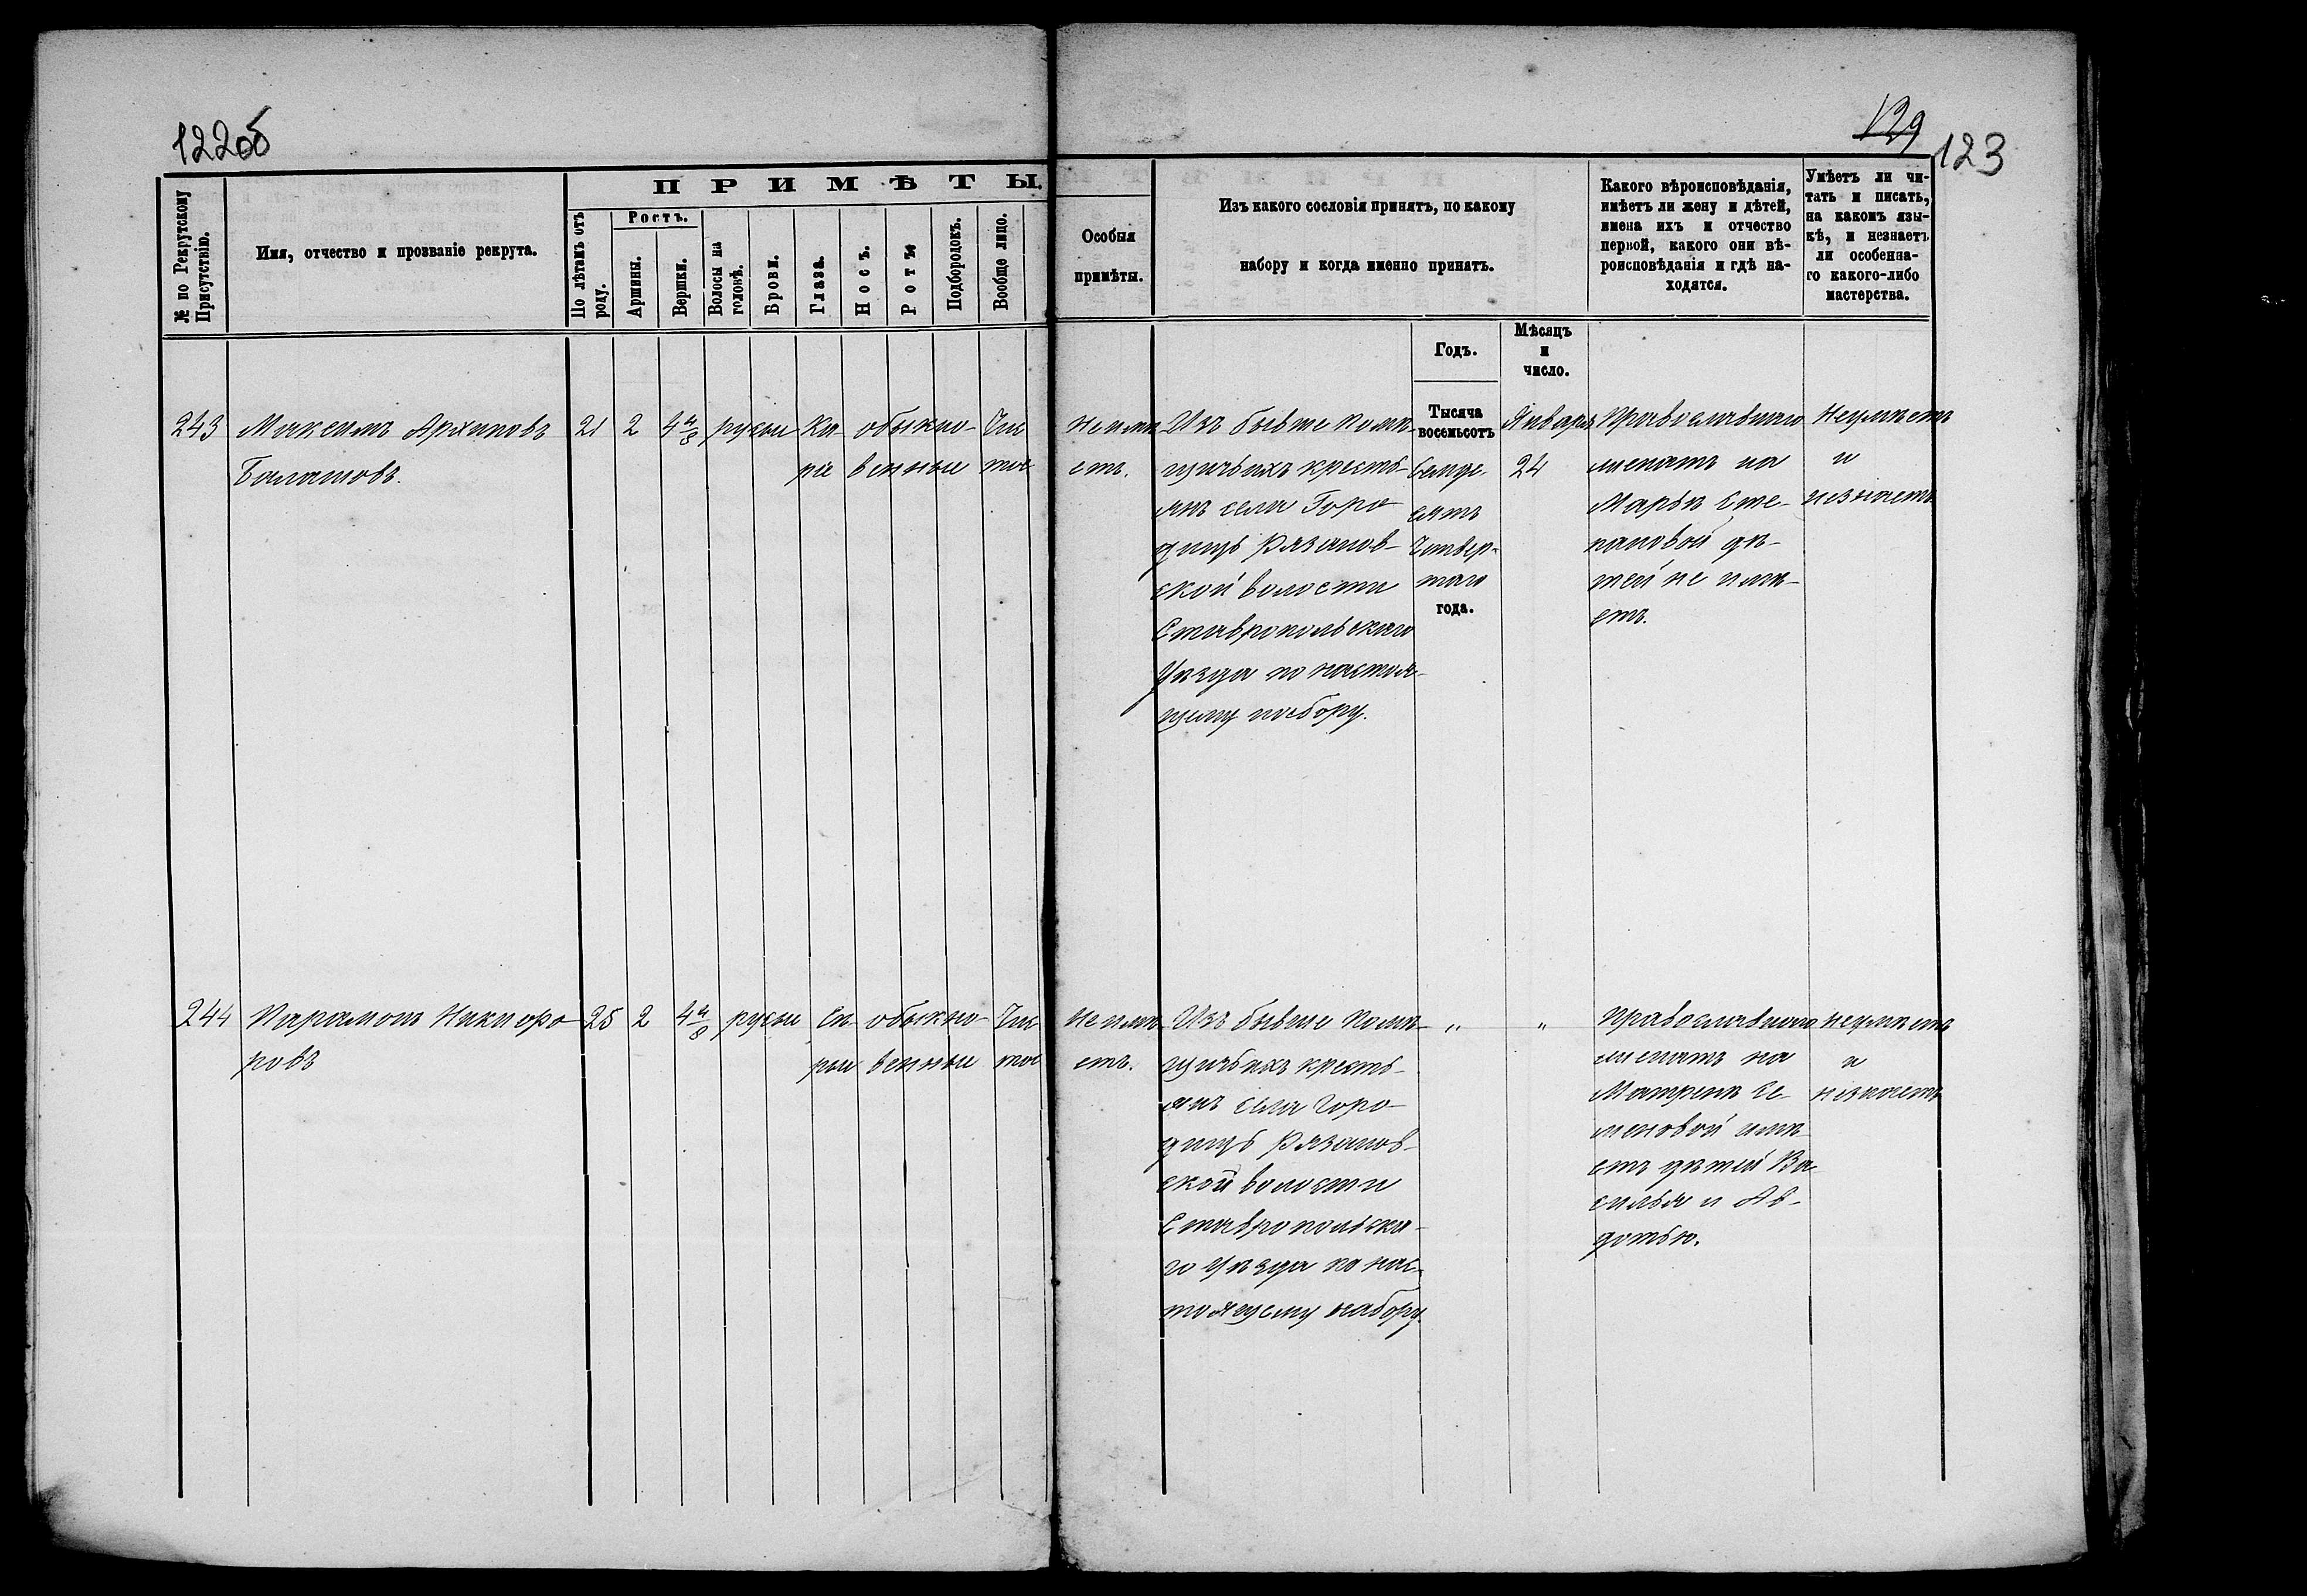 122об
129
123
ПРИМѢТЫ.
№ по Рекрутскому Присутствію.
Имя, отчество и прозваніе рекрута.
По лѣтамъ отъ роду.
Ростъ.
Аршины.
Вершки.
Волосы на головѣ.
Брови.
Глаза.
Носъ.
Ротъ
Подбородокъ.
Вообще лицо.
Особыя
примѣты.
Изъ какого сословія принятъ, по какому
набору и когда именно принятъ.
Какого вѣроисповѣданія,
имѣетъ ли жену и дѣтей,
имена ихъ и отчество
первой, какого они вѣ-
роисповѣданія и гдѣ на-
ходятся.
Умѣетъ ли чи-
тать и писать,
на какомъ язы-
кѣ, и незнаетъ
ли особенна-
го какого-либо
мастерства.
Годъ.
Мѣсяцъ
и
число.
243
Максимъ Архиповъ
Балашовъ.
21
2
4 4/8
русые
Ка-
ріе
обыкно-
венные
Чис
тое
Неимѣ
етъ.
Изъ бывше помѣ-
щичьихъ кресть-
янъ села Горо
дищъ Рязанов-
ской волости
Ставропольскаго
Уѣзда по настоя-
щему набору.
Тысяча
восемьсотъ
Семде-
сятъ
Четвер-
таго
года.
Января
24
Православнаго
женатъ на
Марьѣ Сте-
пановой дѣ-
тей не имѣ-
етъ.
Неумѣетъ
и
незнаетъ
244
Парамонъ Никифо-
ровъ
25
2
4 4/8
русые
Сѣ-
рые
обыкно-
венные
Чис-
тое
Неимѣ
етъ.
Изъ бывше помѣ-
щичьихъ кресть-
янъ села Горо-
дищъ Рязанов-
ской волости
Ставропольска-
го Уѣзда по нас-
тоящему набору.
"
"
Православнаго
женатъ на
Матренѣ Се-
меновой имѣ
етъ дѣтей Ва
силья и Ав-
дотью.
неумѣетъ
и
незнаетъ